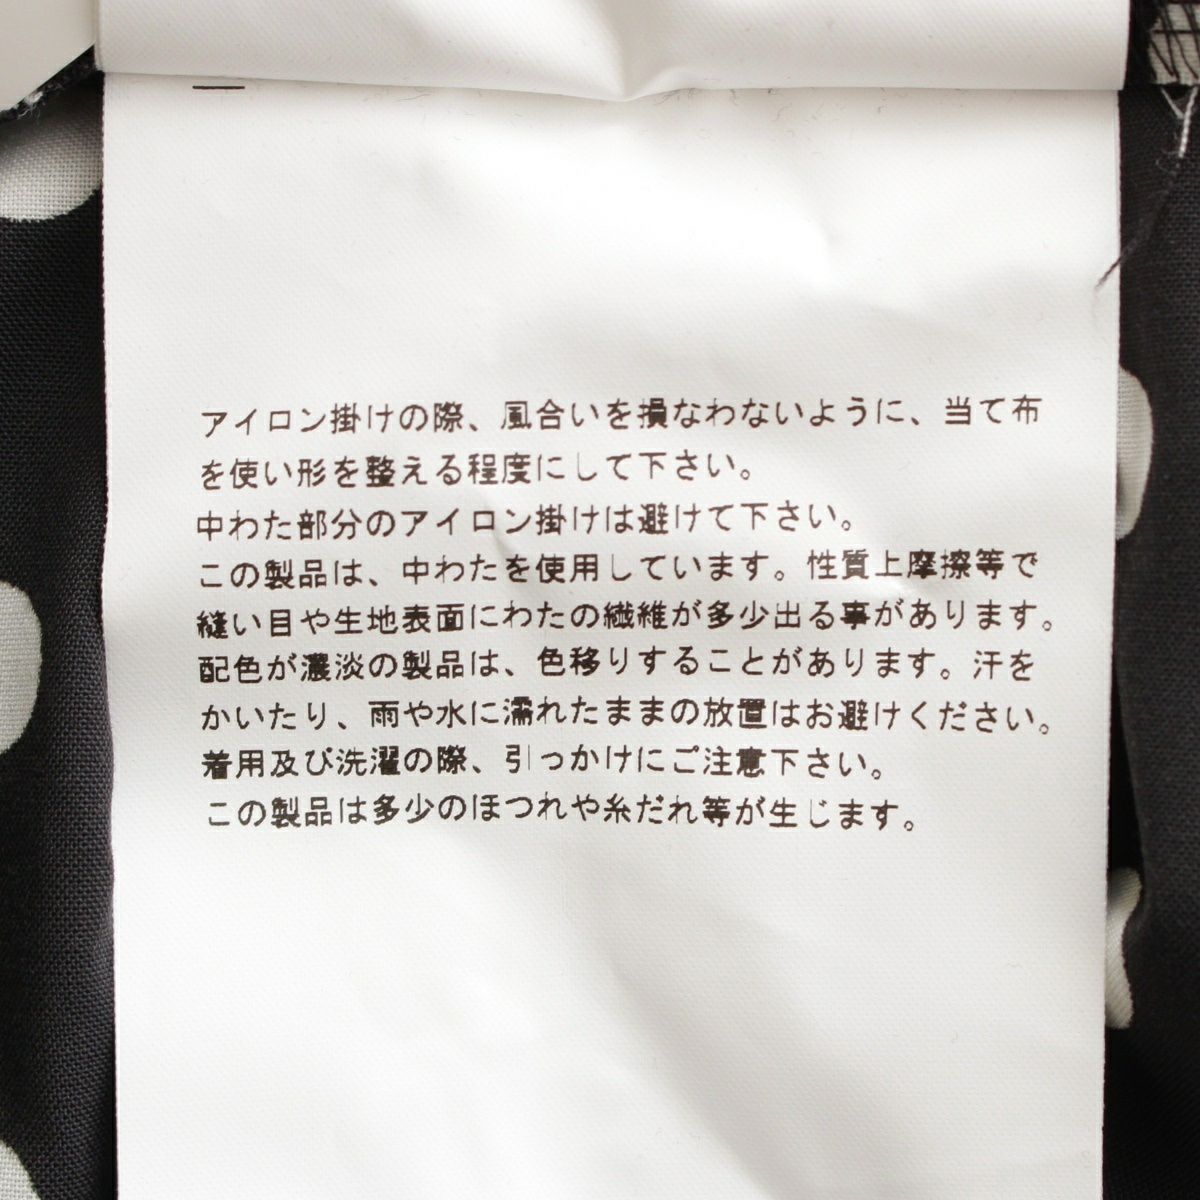 アイロン掛けの際、風合いを損なわないように、当て布
を使い形を整える程度にして下さい。
中わた部分のアイロン掛けは避けて下さい。
この製品は、中わたを使用しています。性質上摩擦等で
縫い目や生地表面にわたの繊維が多少出る事があります。
配色が濃淡の製品は、色移りすることがあります。汗を
かいたり、雨や水に濡れたままの放置はお避けください。
着用及び洗濯の際、引っかけにご注意下さい。
この製品は多少のほつれや糸だれ等が生じます。